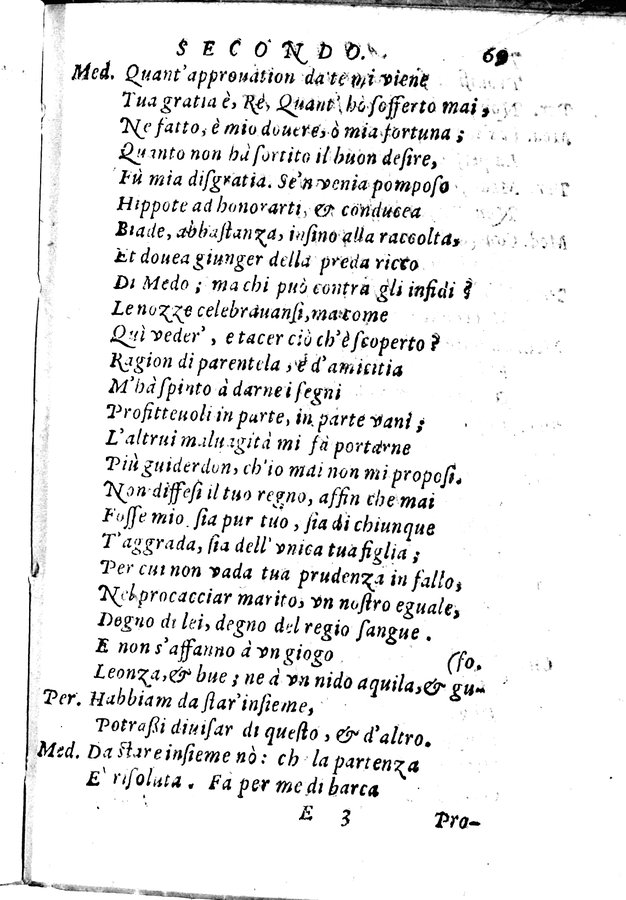 SECONDO. 69
Med. Quant'approuation da te mi viene
Tua gratia è, Rè, Quant' hò sofferto mai,
Ne fatto, è mio douere, ò mia fortuna;
Quanto non hà sortito il buon desire,
Fù mia disgratia. Se'n venia pomposo
Hippote ad honorarti, & conducea
Biade, abbastanza, insino alla raccolta,
Et douea giunger della preda ricco
Di Medo; ma chi può contra gli infidi?
Le nozze celebrauansi, ma come
Quì veder', e tacer ciò ch'è scoperto?
Ragion di parentela, è d'amicitia
M'hà spinto à darne i segni
Profitteuoli in parte, in parte vani;
L'altrui maluagità mi fà portarne
Più guiderdon, ch'io mai non mi proposi.
Non diffesi il tuo regno, affin che mai
Fosse mio. sia pur tuo, sia di chiunque
T'aggrada, sia dell'vnica tua figlia;
Per cui non vada tua prudenza in fallo,
Nel procacciar marito, vn nostro eguale,
Degno di lei, degno del regio sangue.
E non s'affanno à vn giogo (so.
Leonza, & bue; ne à vn nido aquila, & gu-
Per. Habbiam da star' insieme,
Potraßi diuisar di questo, & d'altro.
Med. Da stare insieme nò: ch la partenza
E' risoluta. Fa per me di barca
E 3 Pro-